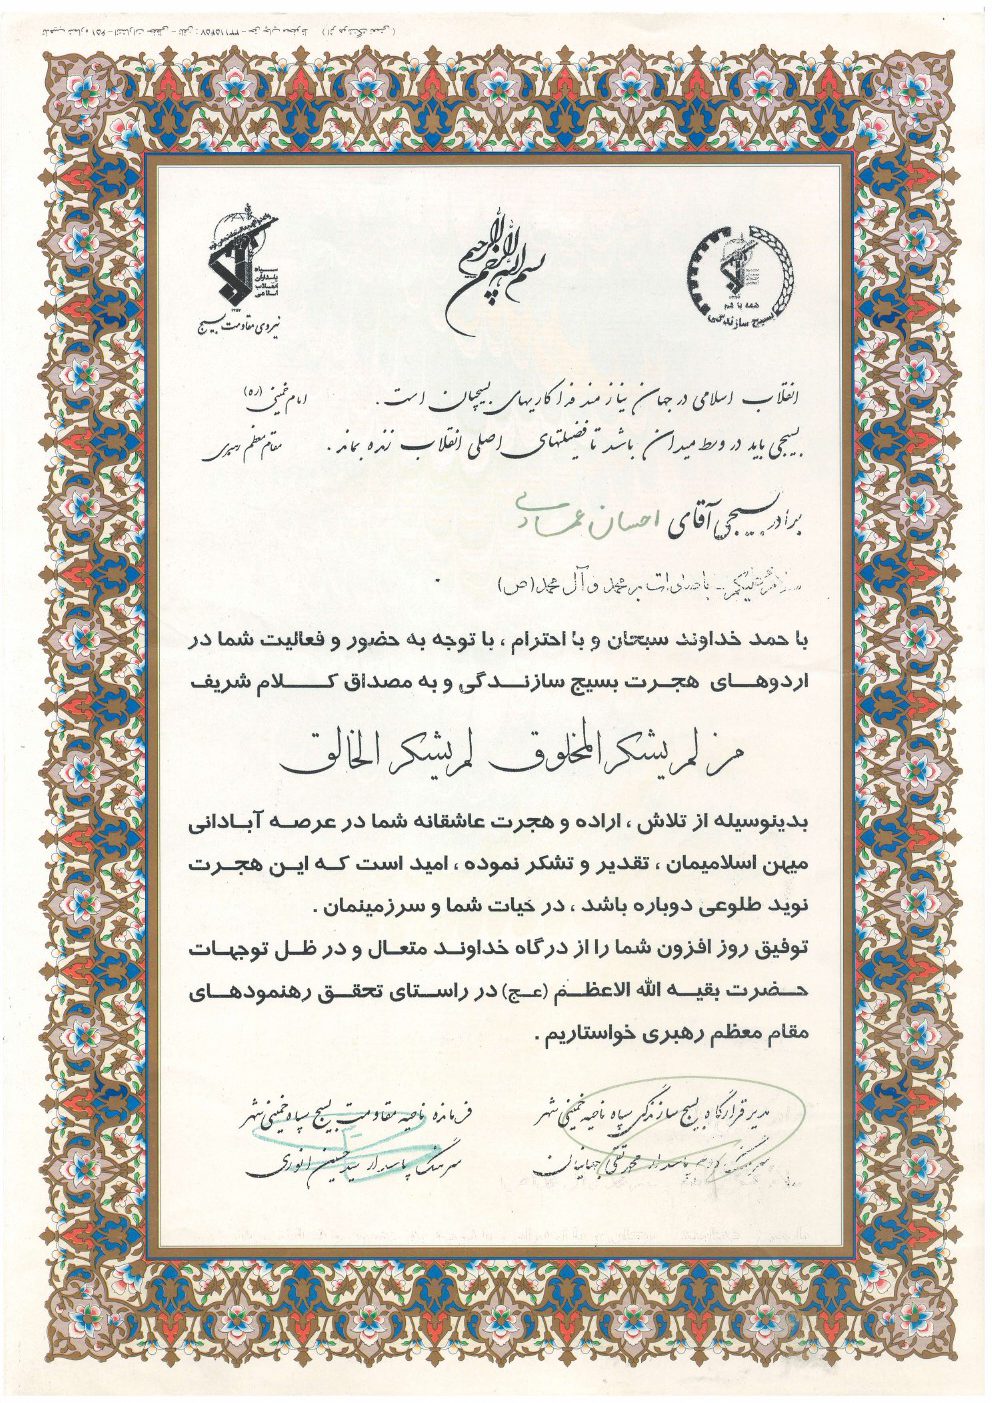 بسم الله الرحمن الرحیم
همه با هم
بسیج سازندگی
سپاه پاسداران انقلاب اسلامی
نیروی مقاومت بسیج
انقلاب اسلامی در جهان نیازمند فداکاریهای بسیجیان است. امام خمینی (ره)
بسیجی باید در وسط میدان باشد تا فضیلتهای اصلی انقلاب زنده بماند. مقام معظم رهبری
برادر بسیجی آقای احسان عمادی
سلام علیکم با صلوات بر محمد و آل محمد (ص)
با حمد خداوند سبحان و با احترام ، با توجه به حضور و فعالیت شما در
اردوهای هجرت بسیج سازندگی و به مصداق کلام شریف
من لم یشکر المخلوق لم یشکر الخالق
بدینوسیله از تلاش ، اراده و هجرت عاشقانه شما در عرصه آبادانی
میهن اسلامیمان ، تقدیر و تشکر نموده ، امید است که این هجرت
نوید طلوعی دوباره باشد ، در حیات شما و سرزمینمان .
توفیق روز افزون شما را از درگاه خداوند متعال و در ظل توجهات
حضرت بقیه الله الاعظم (عج) در راستای تحقق رهنمودهای
مقام معظم رهبری خواستاریم .
مدیر قرارگاه بسیج سازندگی سپاه ناحیه خمینی شهر
سرهنگ دوم پاسدار محمدتقی جهانیان
فرمانده ناحیه مقاومت بسیج سپاه خمینی شهر
سرهنگ پاسدار سید حسین انوری